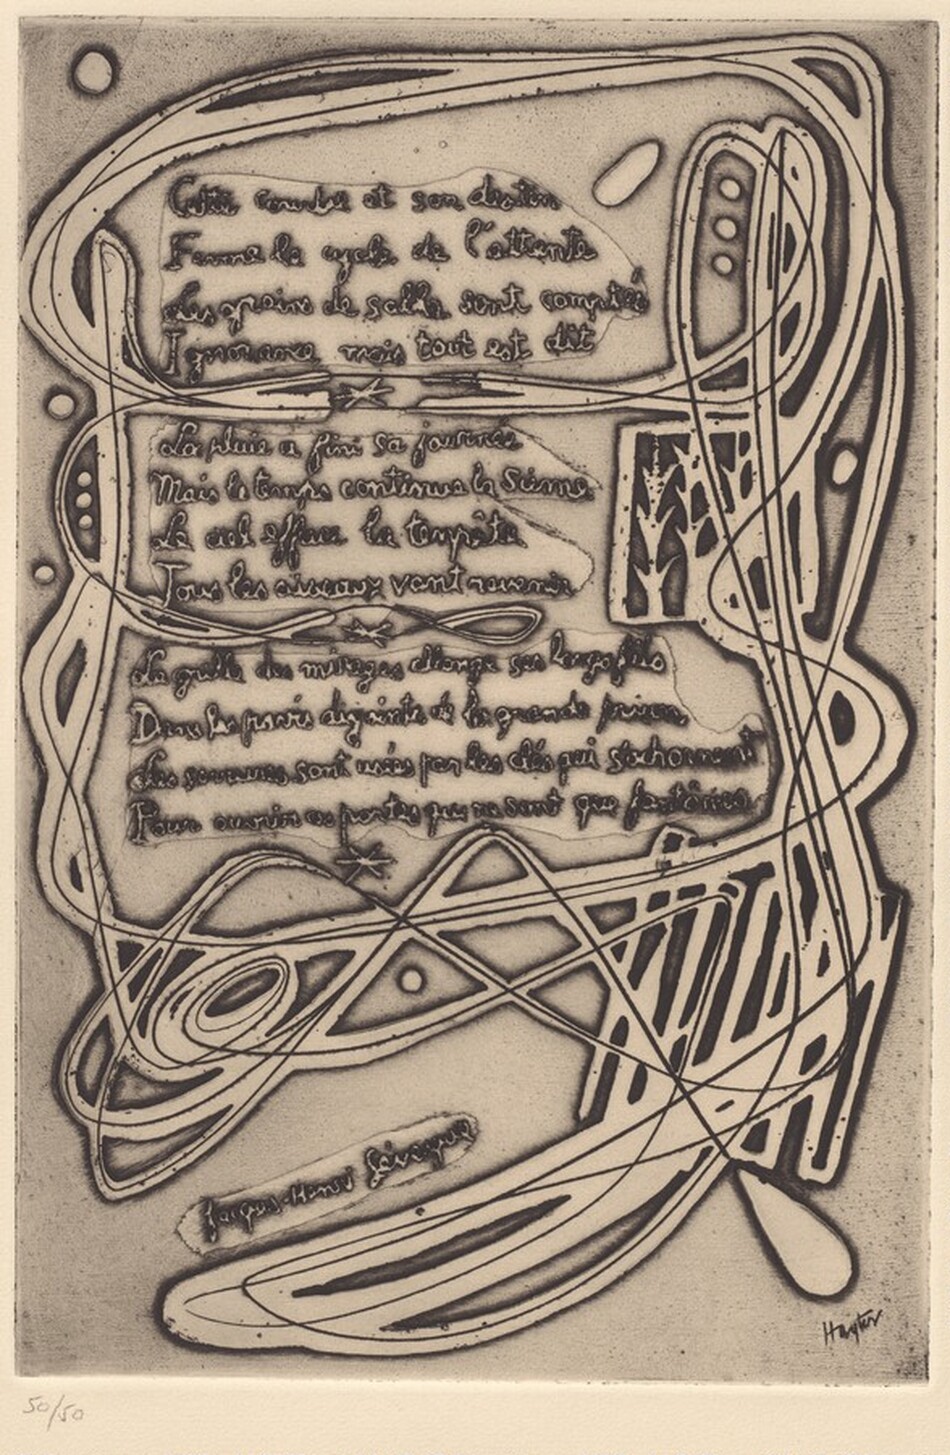 Cette courbe et son destin
Ferme le cycle de l'attente
Les grains de sable sont comptés
Ignorance mais tout est dit
La pluie a fini sa journée
Mais le temps continue la sienne
Le ciel efface la tempête
Tous les oiseaux vont revenir
La grille des mirages change ses
Dans les parois de la grande prison
Les serrures sont usées par les clés qui s'acharnent
Pour ouvrir ces portes qui ne sont que fantômes
Jacques-Henri Lévesque
Hayter
50/50